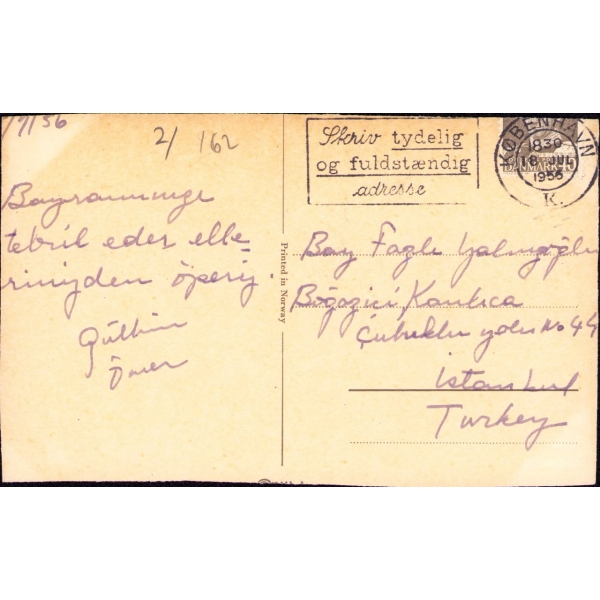 /7/56
2/ 162
Bayramınızı
tebrik eder elle-
rinizden öperiz.
Ömer
Printed in Norway
Skriv tydelig
og fuldstændig
adresse
KØBENHAVN
1830
18 JUL
1956
K.
DANMARK
Bay
Boğaziçi, Kanlıca
Çubuklu yolu No 44
İstanbul
Turkey